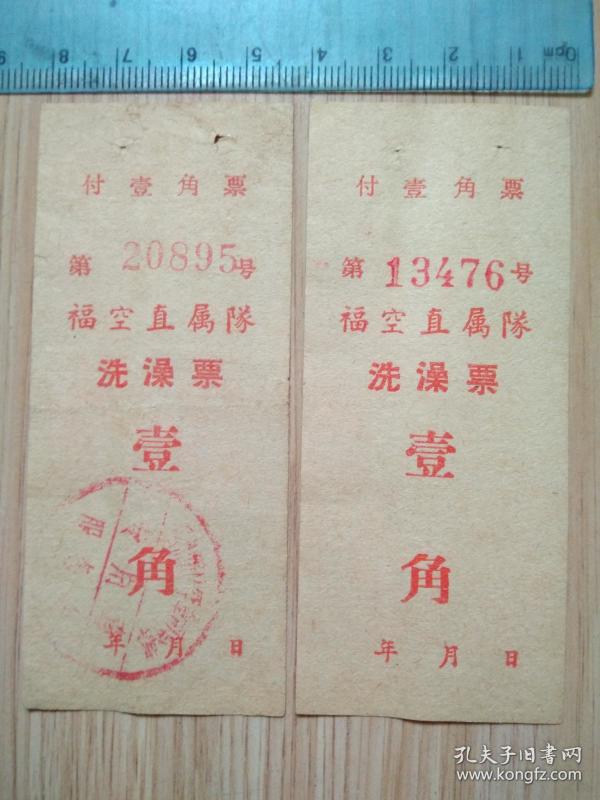 0cm 1 2 3 4 5 6 7 8 9
付壹角票
第 20895 号
福空直属隊
洗澡票
壹
角
年 月 日
付壹角票
第 13476 号
福空直属隊
洗澡票
壹
角
年 月 日
孔夫子旧书网
www.kongfz.com